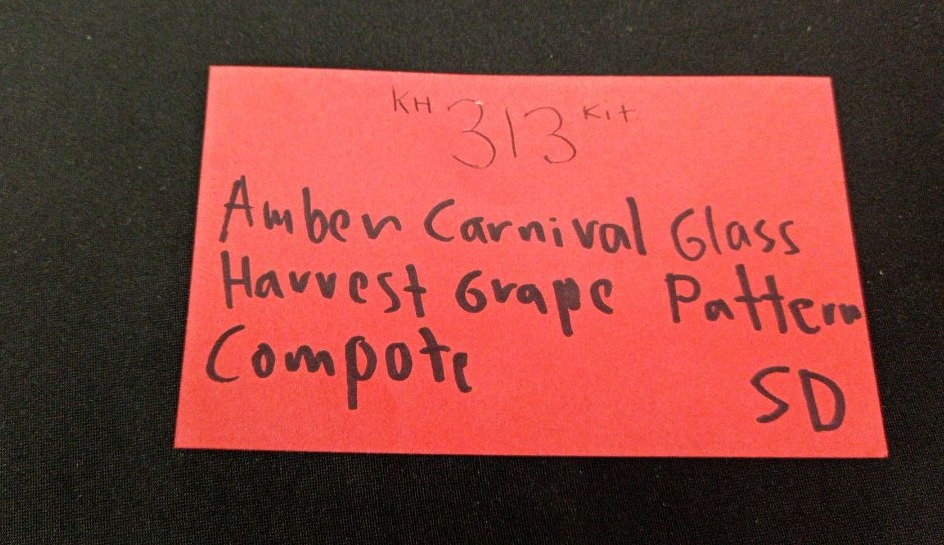 KH 313 Kit
Amber Carnival Glass
Harvest Grape Pattern
Compote
SD